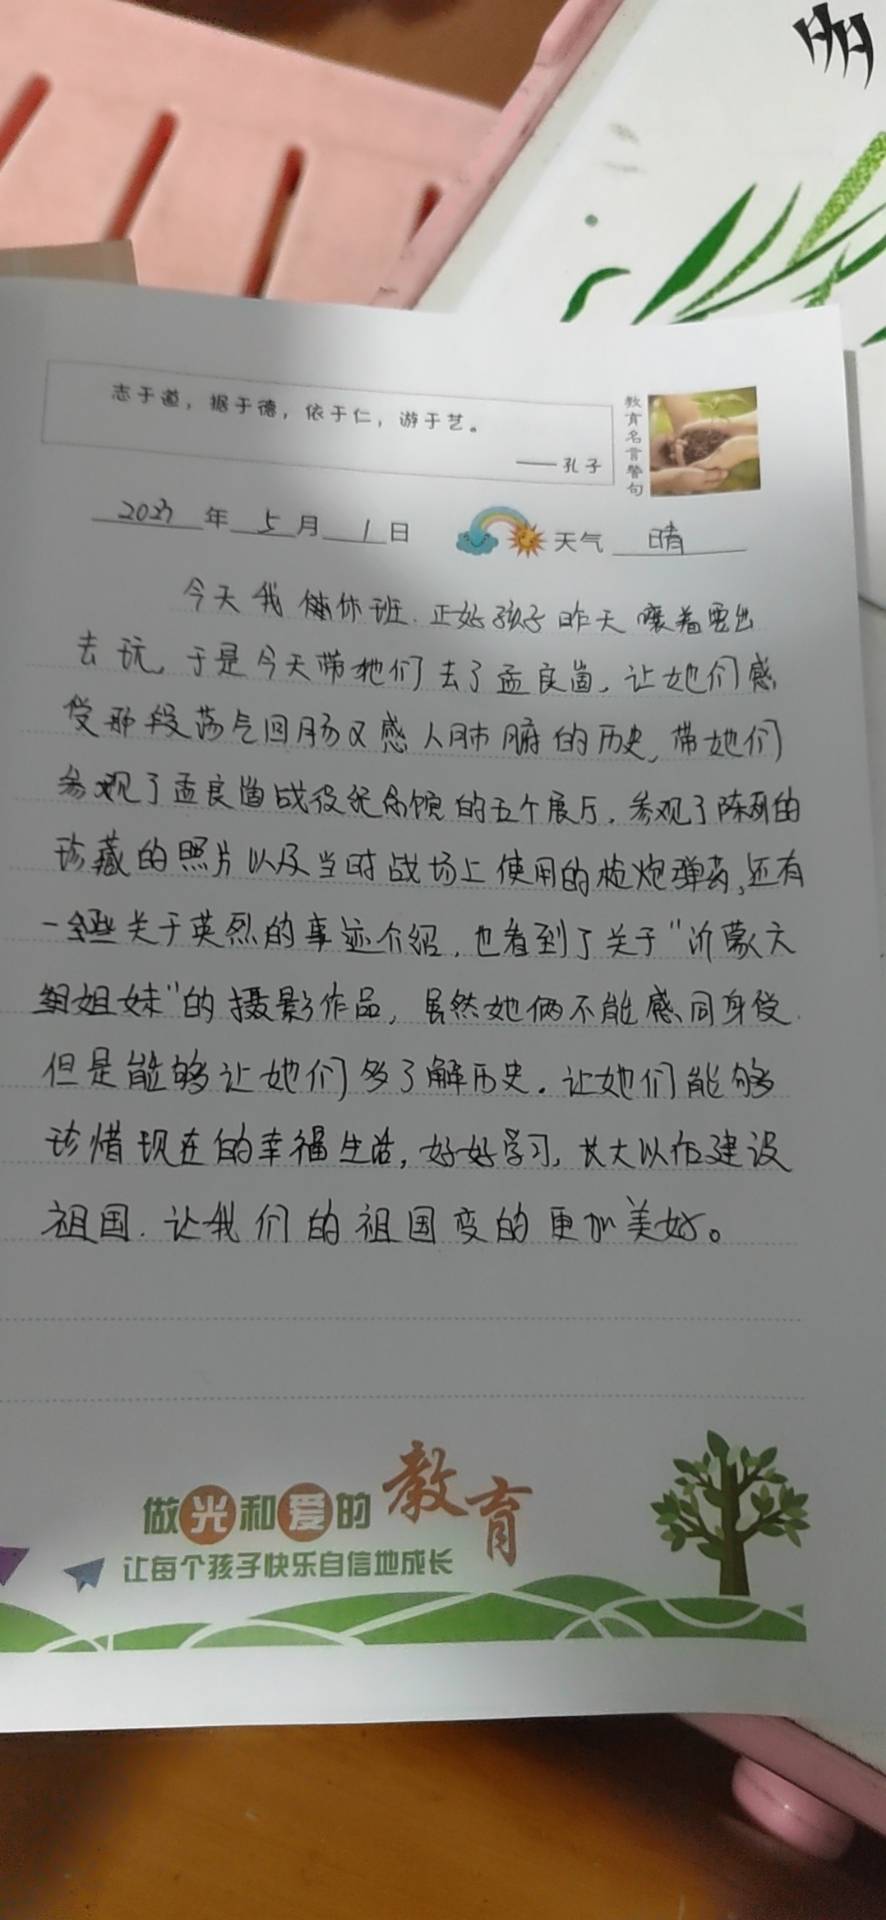 志于道，据于德，依于仁，游于艺。
——孔子
教育名言警句
年 5月 1日 天气 晴
今天我休班.正好孩子昨天嚷着要出
去玩，于是今天带她们去了孟良崮，让她们感
受那段荡气回肠又感人肺腑的历史，带她们
参观了孟良崮战役纪念馆的五个展厅.参观了陈列的
珍藏的照片以及当时战场上使用的枪炮弹药，还有
一些关于英烈的事迹介绍，也看到了关于“沂蒙六
姐妹”的摄影作品，虽然她俩不能感同身受.
但是能够让她们多了解历史.让她们能够
珍惜现在的幸福生活，好好学习，长大以后建设
祖国.让我们的祖国变的更加美好。
做光和爱的教育
让每个孩子快乐自信地成长